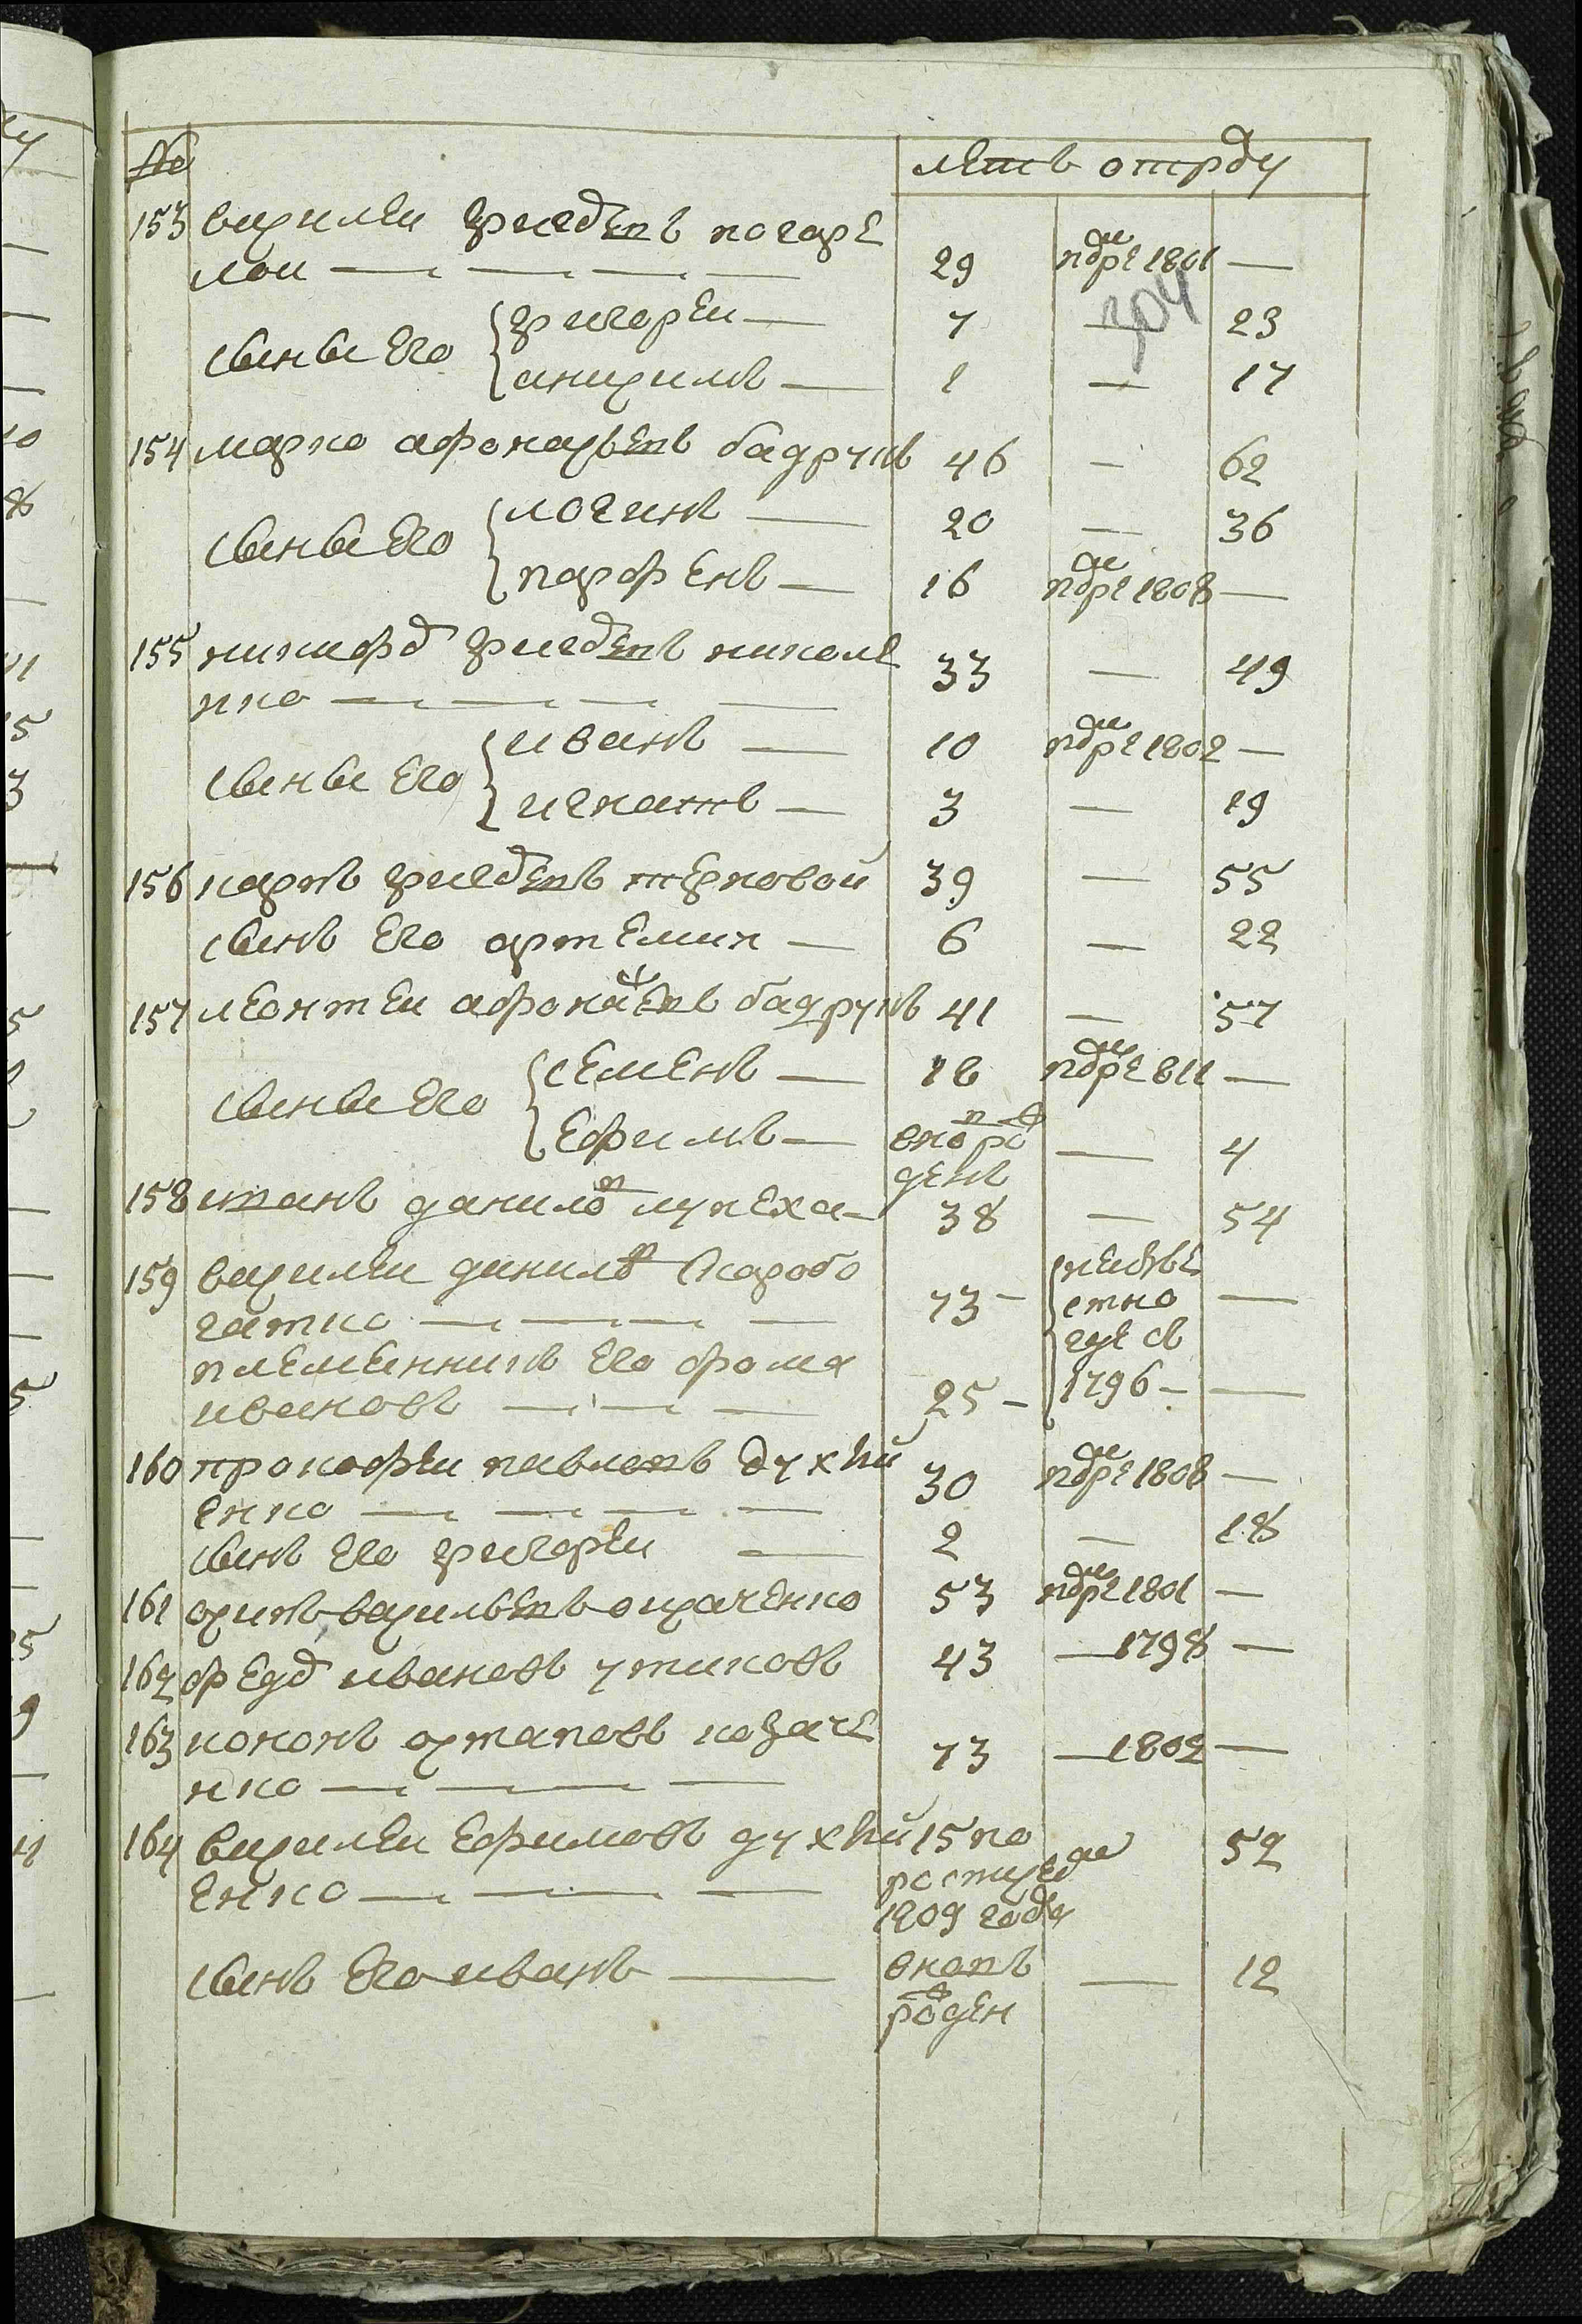 № летъ отрду
153 василеи григдевъ погаре
лои — — — — 29 пдрѣ 1801 —
304
сынъи его { григореи — 7 — 23
анисимъ — 1 — 17
154 марко афонасьевъ бадрукъ 46 — 62
сынъи его { логинъ — 20 — 36
парфенъ — 16 пдрѣ 1808 —
155 никифръ григдевъ николе
нко — — — — 33 — 49
сынъи его { иванъ — 10 пдрѣ 1802 —
игнатъ — 3 — 19
156 карпъ григдевъ терновой 39 — 55
сынъ его артемии — 6 — 22
157 леонтеи афонасевъ бадрукъ 41 — 57
сынъи его { семенъ — 18 пдрѣ 811 —
ефимъ — вновъ ро
денъ — 4
158 степанъ данило лупеха — 38 — 54
159 василеи данилов скоробо
гатко — — — — 73 — { неизвѣ
стно —
племенникъ его фома где съ
ивановъ — — — 25 — 1796 — —
160 прокофеи павловъ духнй
енко — — — — 30 пдрѣ 1808 —
сынъ его григореи — 2 — 18
161 осипъ васильевъ осаченко 53 пдрѣ 1801 —
162 федръ ивановъ утиковъ 43 — 1798 —
163 кононъ остаповъ козаче
нко — — — 73 — 1802 —
164 василеи ефимовъ духнй 15 по 52
енко — — — —
1809 года
сынъ его иванъ — вновъ — 12
роден